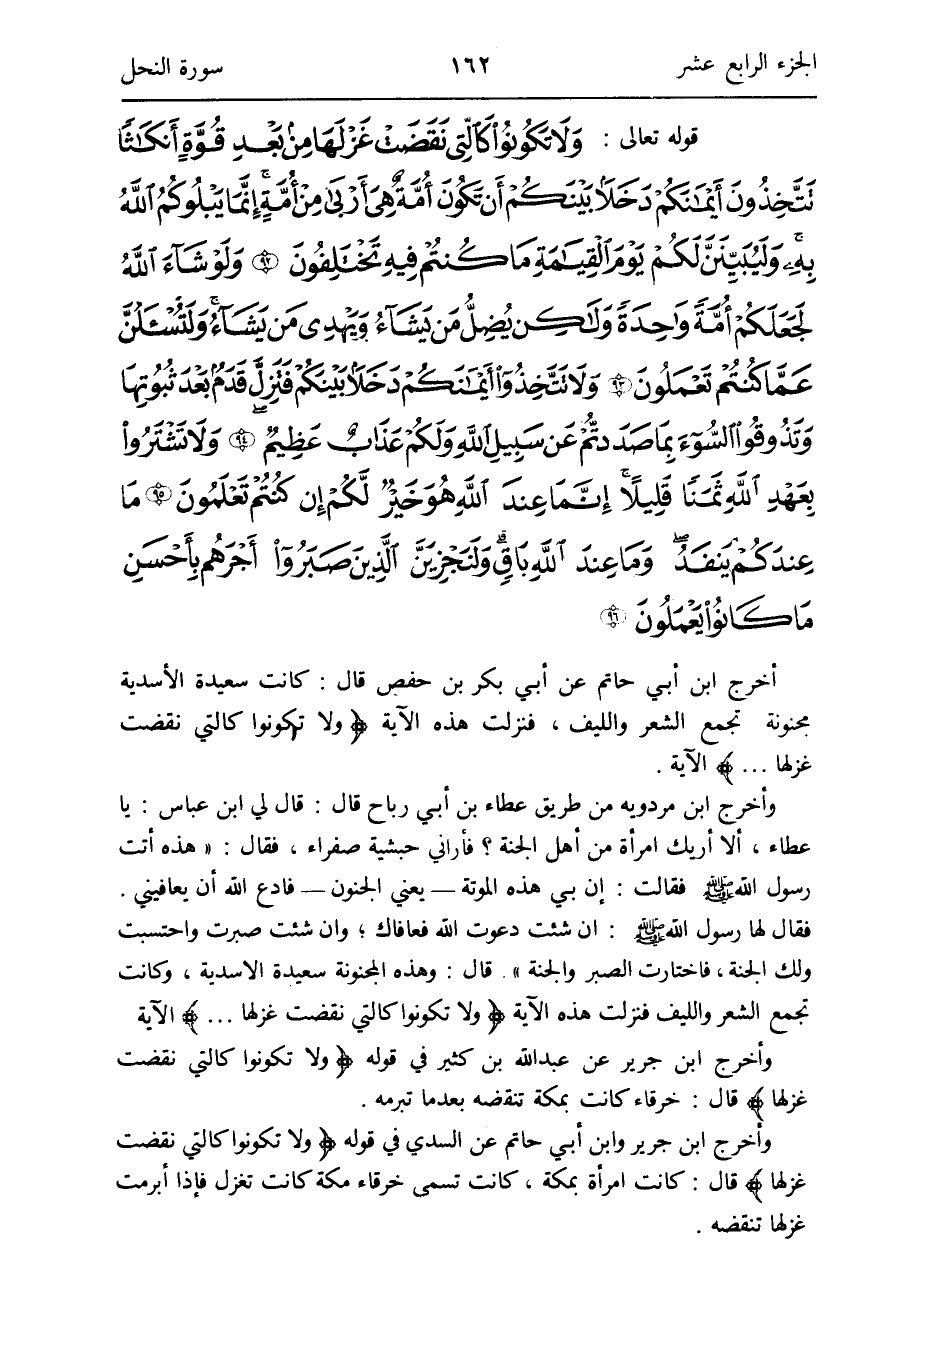 الجزء الرابع عشر ١٦٢ سورة النحل
قوله تعالى : وَلَا تَكُونُوا۟ كَٱلَّتِى نَقَضَتْ غَزْلَهَا مِنۢ بَعْدِ قُوَّةٍ أَنكَٰثًا
تَتَّخِذُونَ أَيْمَٰنَكُمْ دَخَلًۢا بَيْنَكُمْ أَن تَكُونَ أُمَّةٌ هِىَ أَرْبَىٰ مِنْ أُمَّةٍ ۚ إِنَّمَا يَبْلُوكُمُ ٱللَّهُ
بِهِۦ ۚ وَلَيُبَيِّنَنَّ لَكُمْ يَوْمَ ٱلْقِيَٰمَةِ مَا كُنتُمْ فِيهِ تَخْتَلِفُونَ ۝٩٢ وَلَوْ شَآءَ ٱللَّهُ
لَجَعَلَكُمْ أُمَّةً وَٰحِدَةً وَلَٰكِن يُضِلُّ مَن يَشَآءُ وَيَهْدِى مَن يَشَآءُ ۚ وَلَتُسْـَٔلُنَّ
عَمَّا كُنتُمْ تَعْمَلُونَ ۝٩٣ وَلَا تَتَّخِذُوٓا۟ أَيْمَٰنَكُمْ دَخَلًۢا بَيْنَكُمْ فَتَزِلَّ قَدَمٌۢ بَعْدَ ثُبُوتِهَا
وَتَذُوقُوا۟ ٱلسُّوٓءَ بِمَا صَدَدتُّمْ عَن سَبِيلِ ٱللَّهِ ۖ وَلَكُمْ عَذَابٌ عَظِيمٌ ۝٩٤ وَلَا تَشْتَرُوا۟
بِعَهْدِ ٱللَّهِ ثَمَنًا قَلِيلًا ۚ إِنَّمَا عِندَ ٱللَّهِ هُوَ خَيْرٌ لَّكُمْ إِن كُنتُمْ تَعْلَمُونَ ۝٩٥ مَا
عِندَكُمْ يَنفَدُ ۖ وَمَا عِندَ ٱللَّهِ بَاقٍ ۗ وَلَنَجْزِيَنَّ ٱلَّذِينَ صَبَرُوٓا۟ أَجْرَهُم بِأَحْسَنِ
مَا كَانُوا۟ يَعْمَلُونَ ۝٩٦
أخرج ابن أبي حاتم عن أبي بكر بن حفص قال : كانت سعيدة الأسدية
مجنونة تجمع الشعر والليف ، فنزلت هذه الآية ﴿ ولا تكونوا كالتي نقضت
غزلها ... ﴾ الآية .
وأخرج ابن مردويه من طريق عطاء بن أبي رباح قال : قال لي ابن عباس : يا
عطاء ، ألا أريك امرأة من أهل الجنة ؟ فأراني حبشية صفراء ، فقال : « هذه أتت
رسول الله ﷺ فقالت : إن بي هذه الموتة — يعني الجنون — فادع الله أن يعافيني .
فقال لها رسول الله ﷺ : ان شئت دعوت الله فعافاك ؛ وان شئت صبرت واحتسبت
ولك الجنة ، فاختارت الصبر والجنة » . قال : وهذه المجنونة سعيدة الاسدية ، وكانت
تجمع الشعر والليف فنزلت هذه الآية ﴿ ولا تكونوا كالتي نقضت غزلها ... ﴾ الآية
وأخرج ابن جرير عن عبدالله بن كثير في قوله ﴿ ولا تكونوا كالتي نقضت
غزلها ﴾ قال : خرقاء كانت بمكة تنقضه بعدما تبرمه .
وأخرج ابن جرير وابن أبي حاتم عن السدي في قوله ﴿ ولا تكونوا كالتي نقضت
غزلها ﴾ قال : كانت امرأة بمكة ، كانت تسمى خرقاء مكة كانت تغزل فإذا أبرمت
غزلها تنقضه .